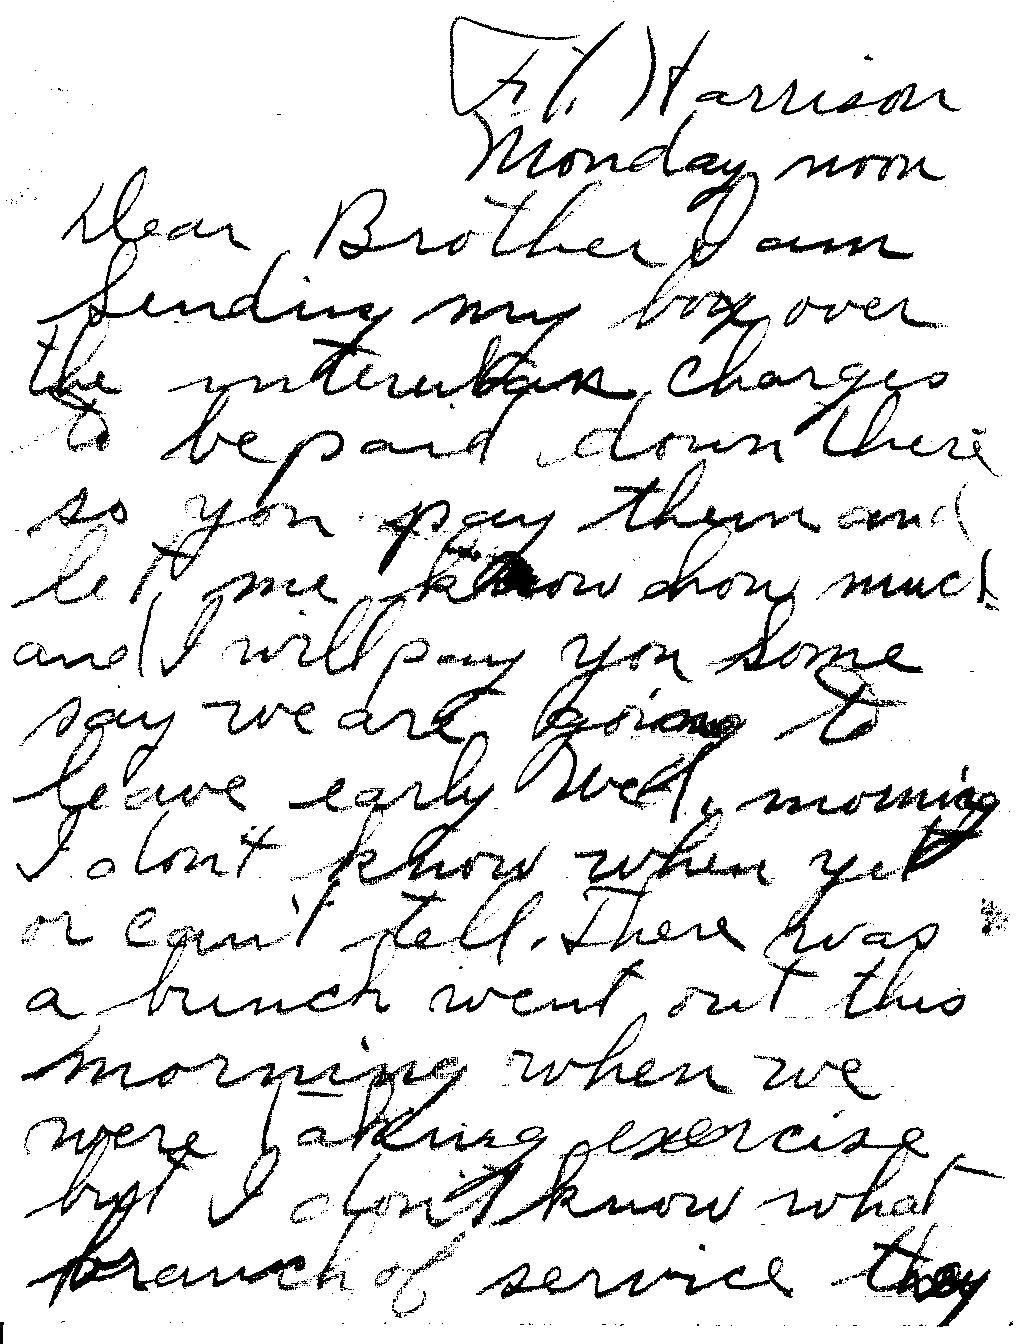 Ft. Harrison
Monday noon
Dear Brother I am
sending my box over
the interurban charges
to be paid down there
so you pay them and
let me know how much
and I will pay you some
say we are going to
leave early Wed, morning
I don't know when yet
or can't tell. There was
a bunch went out this
morning when we
were taking exercise
but I don't know what
branch of service they